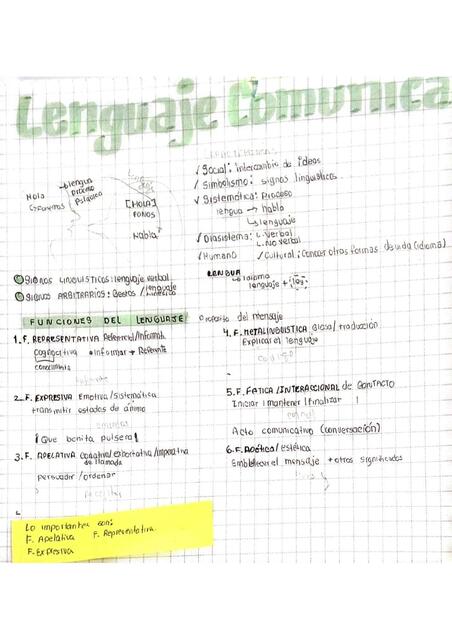 Lenguaje Comunica
CARACTERÍSTICAS:
✓ Social: intercambio de ideas
✓ Simbolismo: signos lingüísticos
✓ Sistemática: Proceso
lengua → habla
↳ lenguaje
✓ Diasistema: L. Verbal
L. No verbal
✓ Humano ✓ Cultural: Conocer otras formas de vida (idioma)
Hola
lengua
proceso
Psíquico
[HOLA]
FONOS
Habla
LENGUA
↳ Idioma
lenguaje +
SIGNOS LINGÜÍSTICOS: lenguaje verbal
SIGNOS ARBITRARIOS: Gestos / lenguaje
FUNCIONES DEL LENGUAJE Propósito del mensaje
1. F. REPRESENTATIVA Referencial/Informat.
Cognoscitiva • Informar → Referente
conocimiento
2. F. EXPRESIVA Emotiva/Sistemática
transmitir estados de ánimo
¡Que bonita pulsera!
3. F. APELATIVA Conativa/exhortativa/imperativa
de llamada
persuadir/ordenar
4. F. METALINGÜÍSTICA Glosa/traducción
Explicar el lenguaje
código
5. F. FÁTICA / INTERACCIONAL de CONTACTO
Iniciar / mantener / finalizar
canal
Acto comunicativo (conversación)
6. F. Poética/estética
Embellecer el mensaje + otros significados
Lo importantes son:
F. Apelativa F. Representativa
F. Expresiva